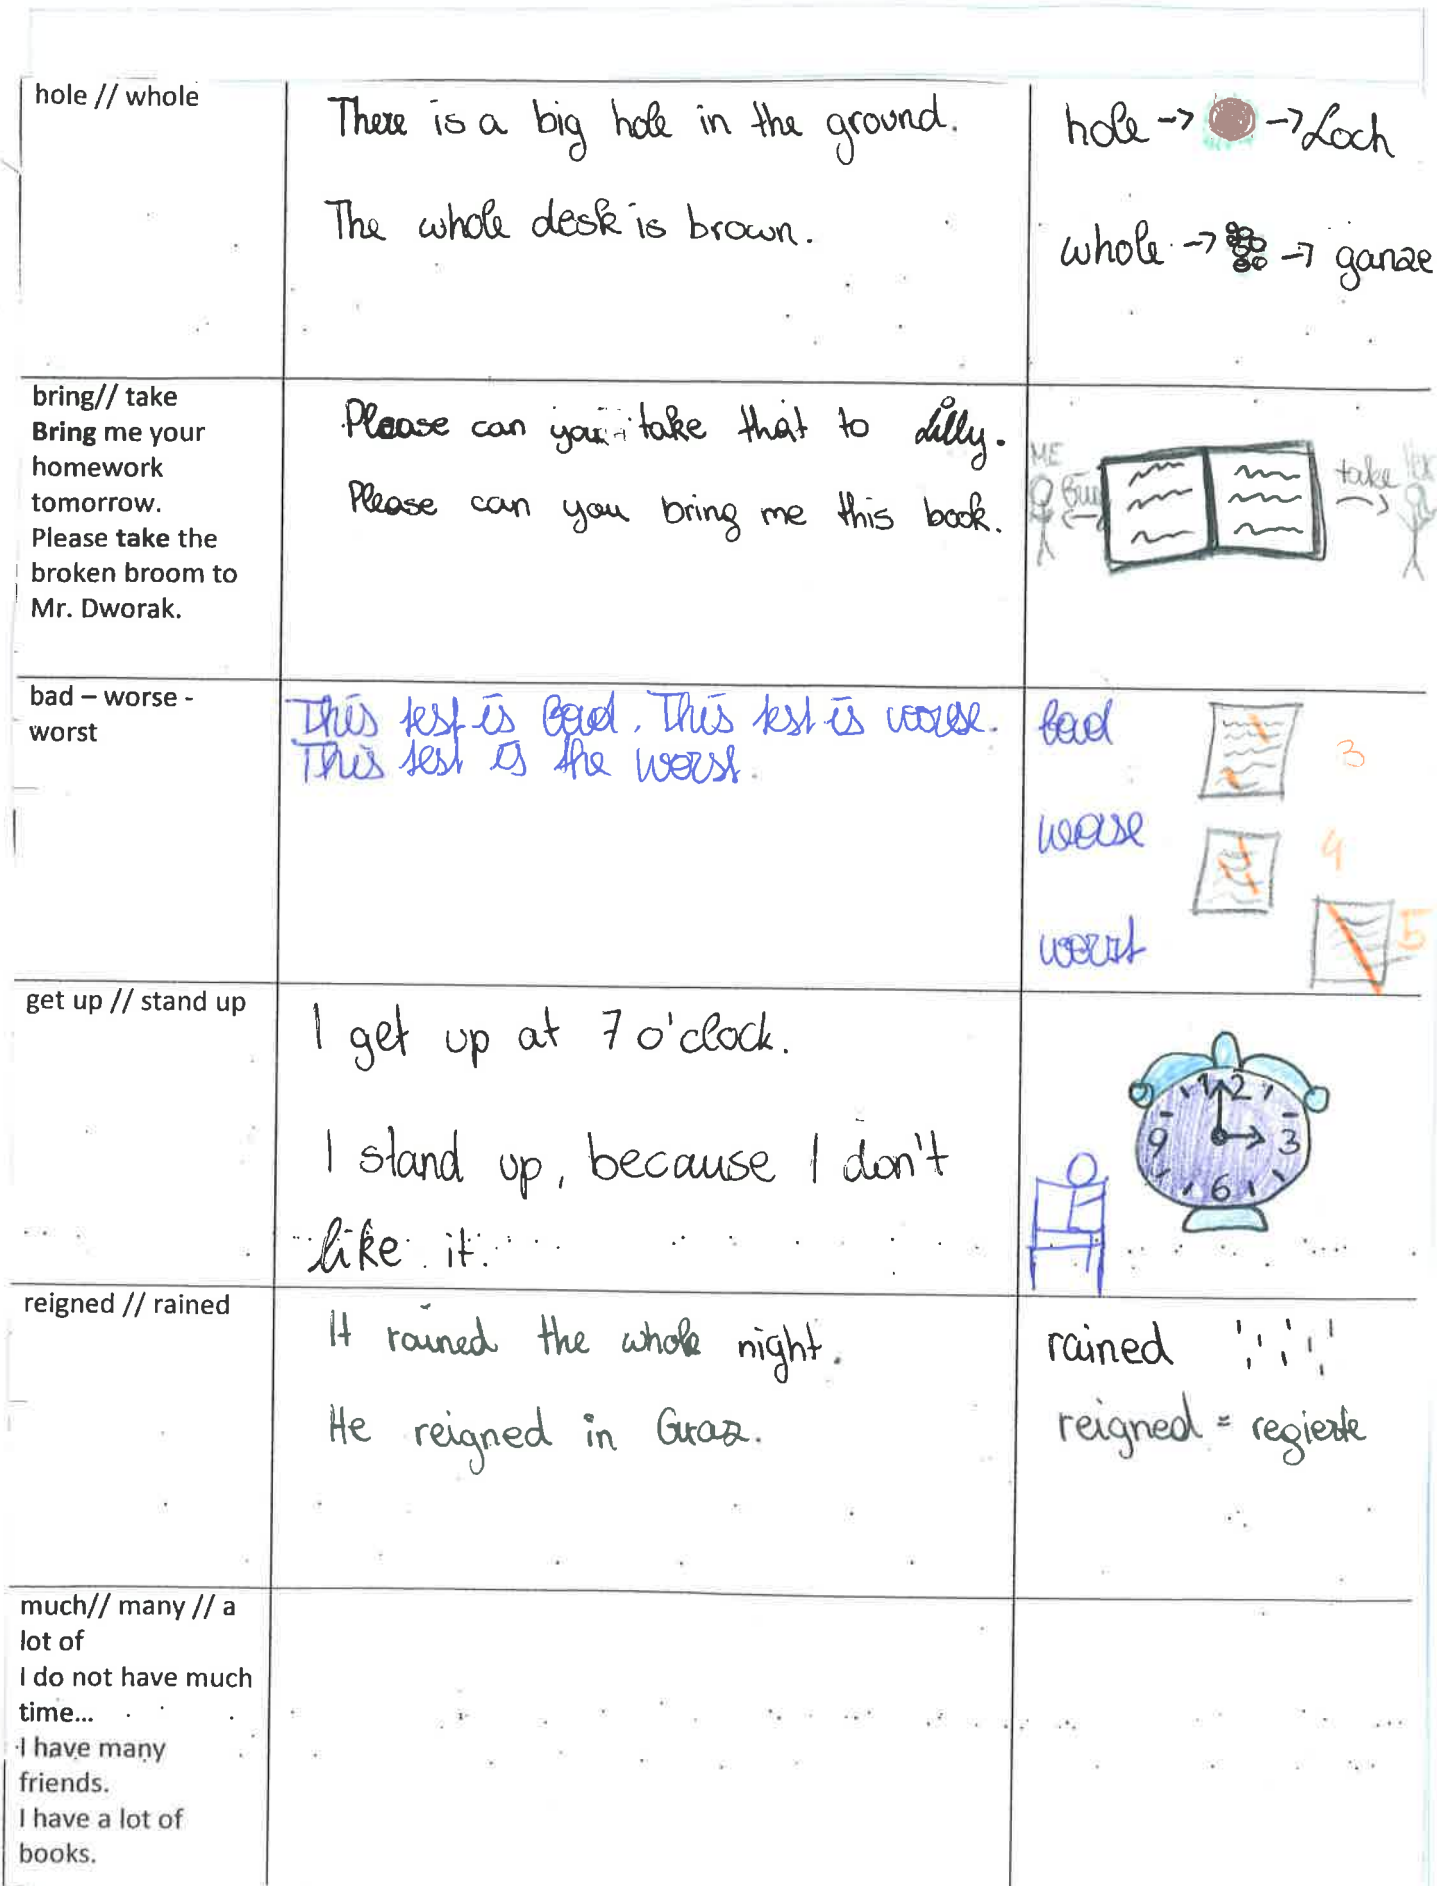 hole // whole
There is a big hole in the ground.
The whole desk is brown.
hole → → Loch
whole → → ganze
bring// take
Bring me your
homework
tomorrow.
Please take the
broken broom to
Mr. Dworak.
Please can you take that to Lilly.
Please can you bring me this book.
ME
take
bad – worse -
worst
This test is bad. This test is worse.
This test is the worst.
bad
3
worse
4
worst
5
get up // stand up
I get up at 7 o'clock.
I stand up, because I don't
like it.
12
9
3
6
reigned // rained
It rained the whole night.
He reigned in Graz.
rained
reigned = regierte
much// many // a
lot of
I do not have much
time...
I have many
friends.
I have a lot of
books.